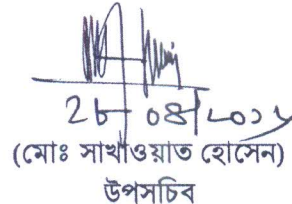 ২৮ ০৪
(মোঃ সাখাওয়াত হোসেন)
উপসচিব